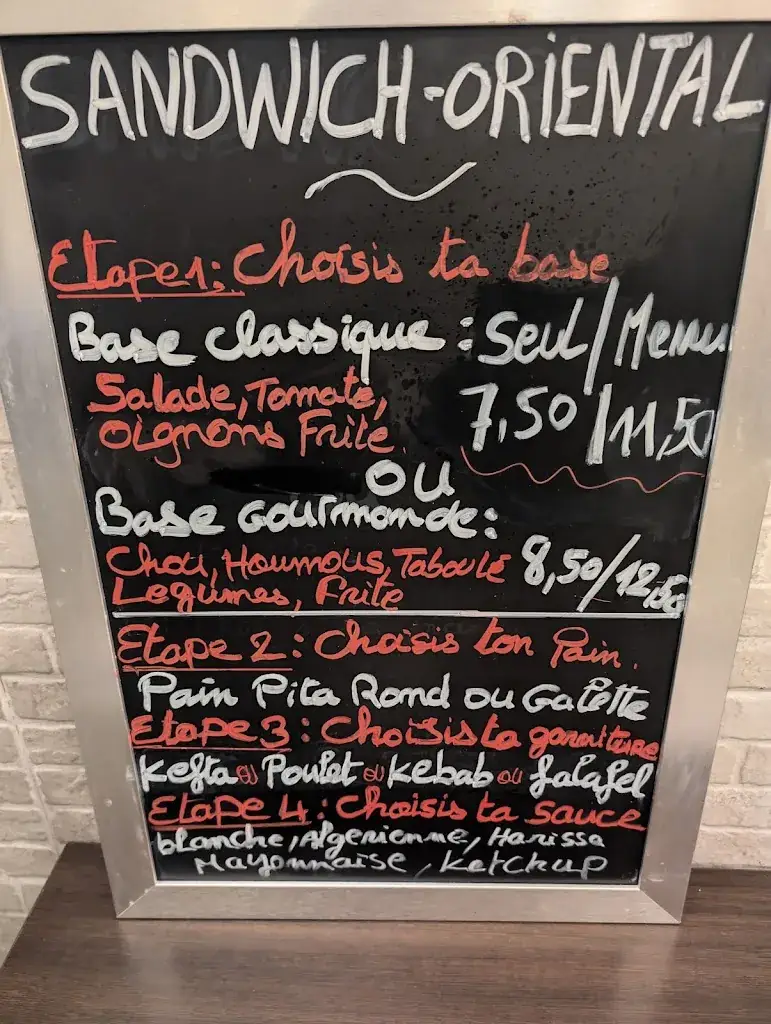 SANDWICH-ORIENTAL
Etape 1: Choisis ta base
Base classique : Seul/Menu
Salade, Tomate, 7,50/11,50
Oignons Frite
OU
Base Gourmande:
Chou, Houmous, Taboulé 8,50/12,50
Legumes, Frite
Etape 2 : Choisis ton Pain.
Pain Pita Rond ou Galette
Etape 3 : Choisis ta garniture
Kefta ou Poulet ou Kebab ou falafel
Etape 4 : Choisis ta sauce
blanche, Algerienne, Harissa
Mayonnaise, Ketchup